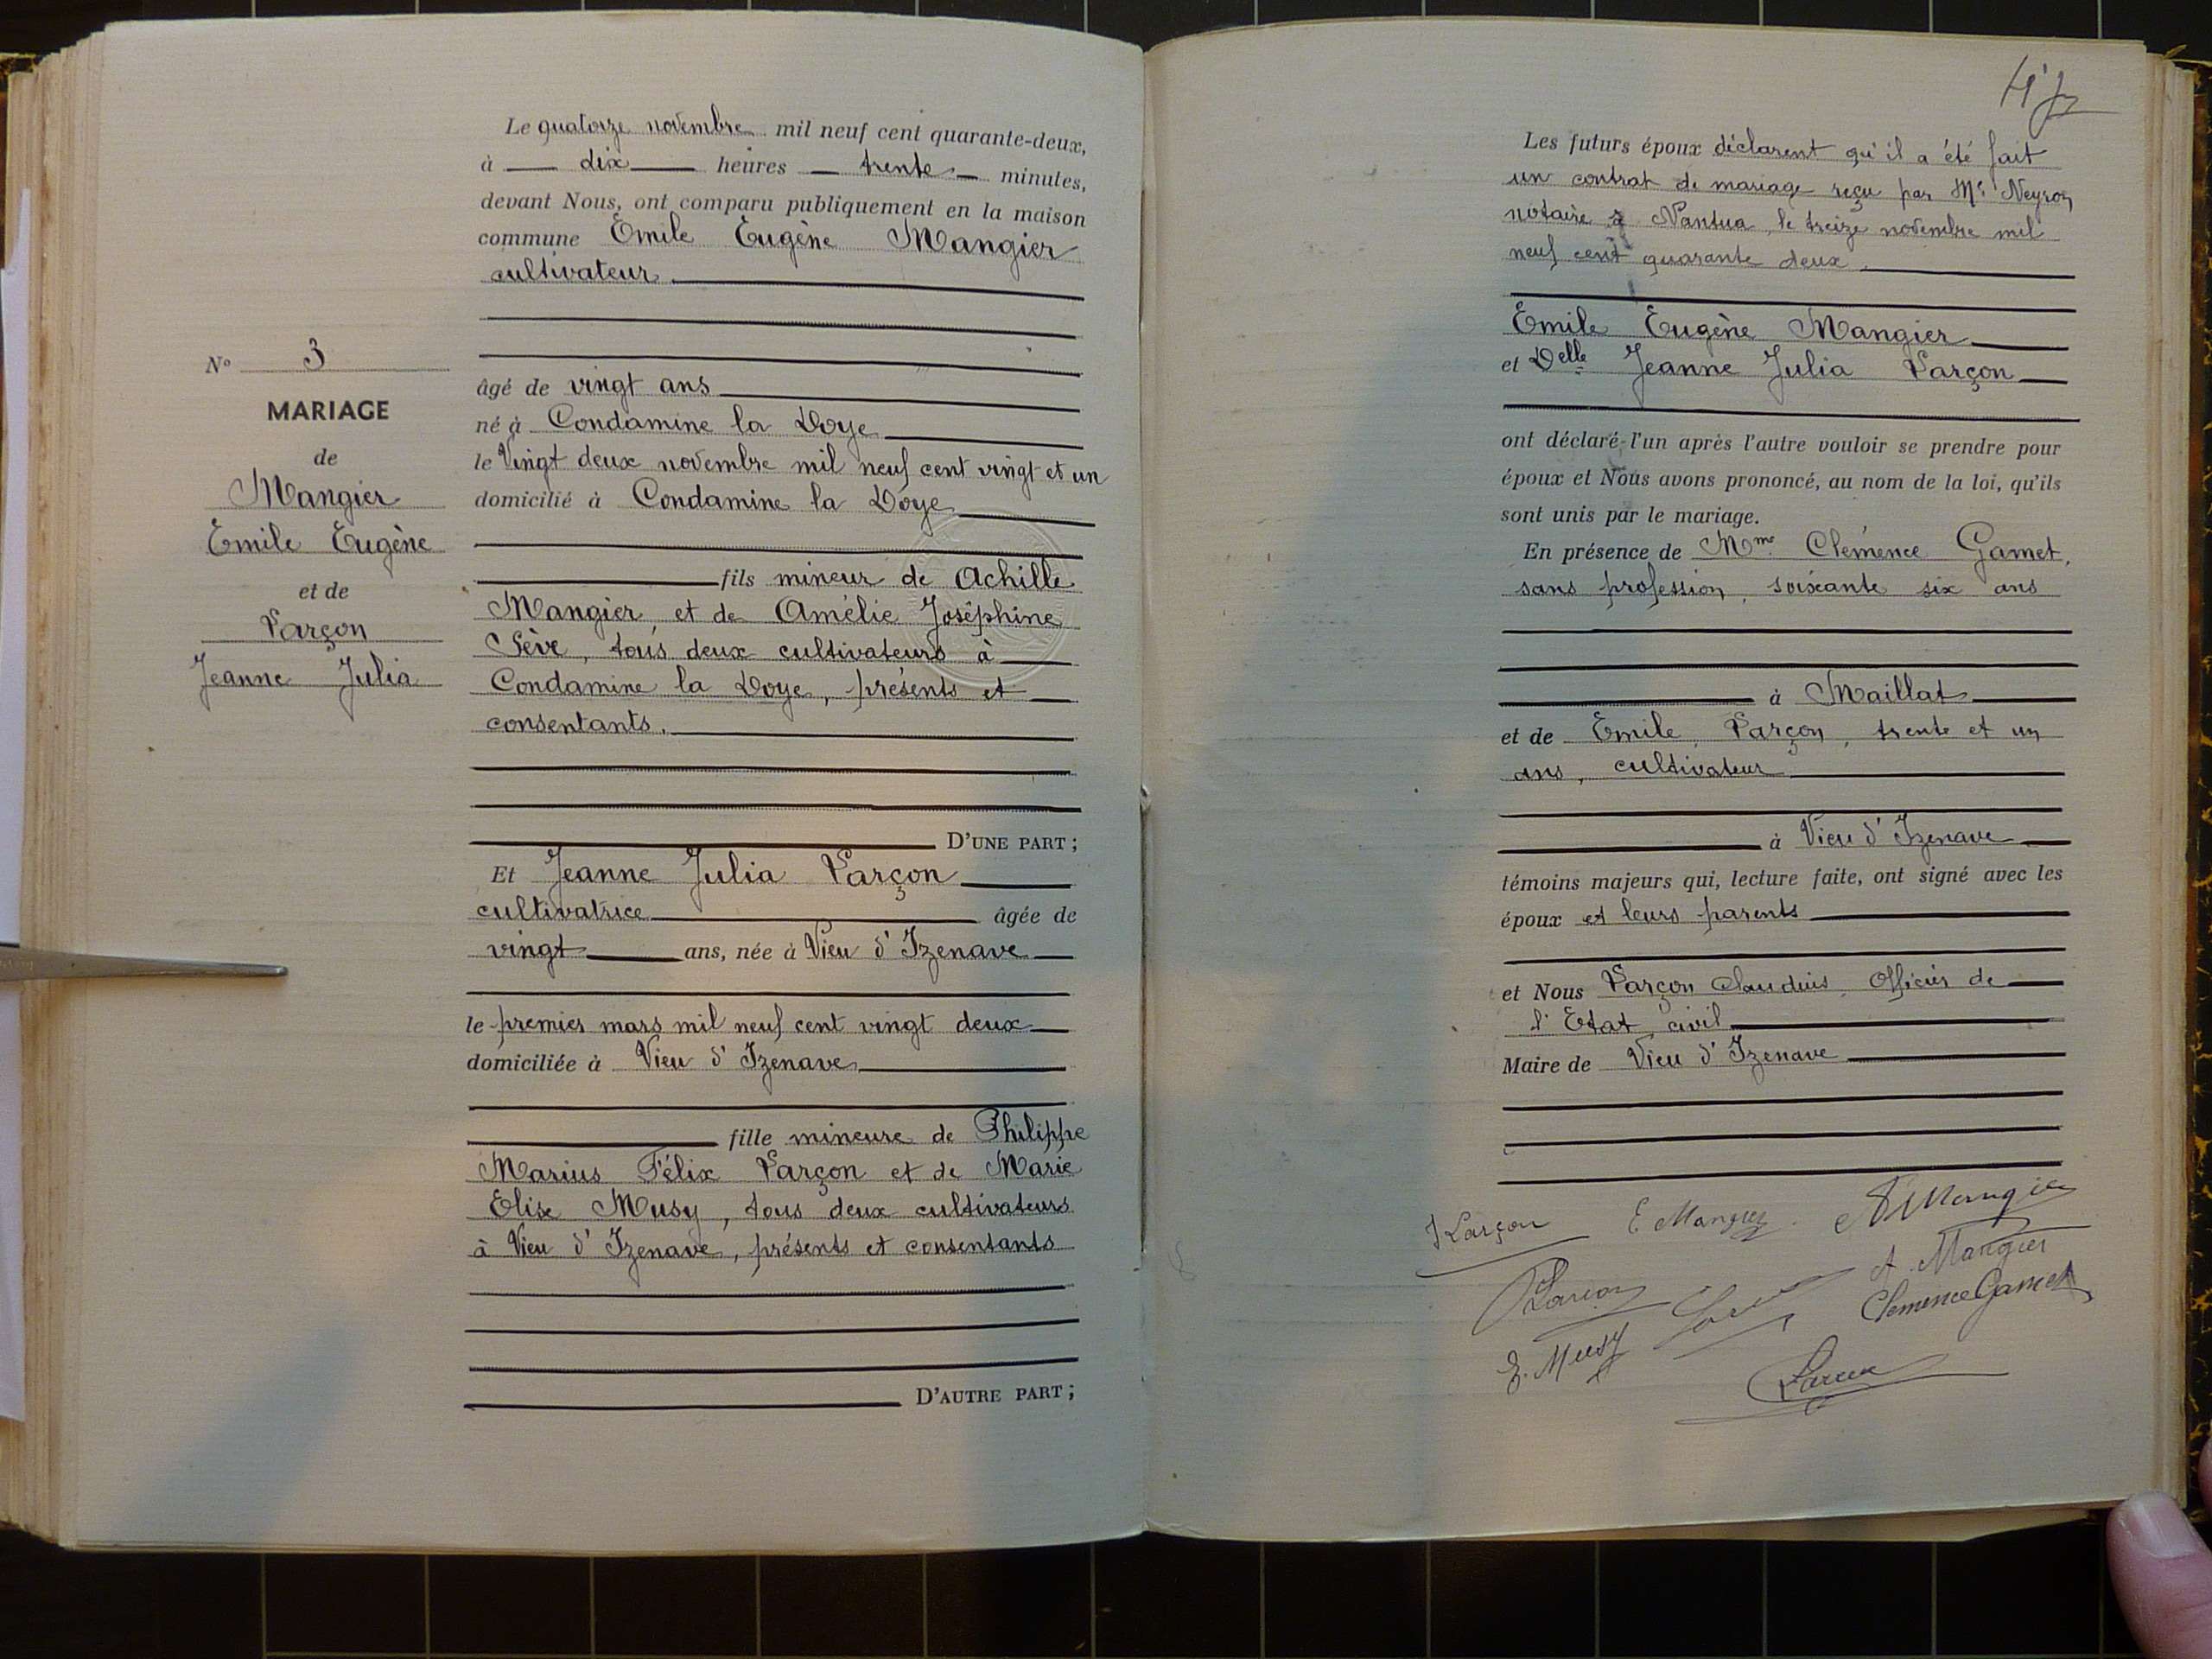 Le quatorze novembre mil neuf cent quarante-deux,
à dix heures trente minutes,
devant Nous, ont comparu publiquement en la maison
commune Emile Eugène Mangier
cultivateur.
âgé de vingt ans
né à Condamine la Doye
le Vingt deux novembre mil neuf cent vingt et un
domicilié à Condamine la Doye
fils mineur de Achille
Mangier et de Amélie Joséphine
Sève, tous deux cultivateurs à
Condamine la Doye, présents et
consentants.
D'UNE PART ;
Et Jeanne Julia Larçon
cultivatrice âgée de
vingt ans, née à Vieu d'Izenave
le premier mars mil neuf cent vingt deux
domiciliée à Vieu d'Izenave
fille mineure de Philippe
Marius Félix Larçon et de Marie
Elise Musy, tous deux cultivateurs
à Vieu d'Izenave, présents et consentants
D'AUTRE PART ;
No 3
MARIAGE
de
Mangier
Emile Eugène
et de
Larçon
Jeanne Julia
Les futurs époux déclarent qu'il a été fait
un contrat de mariage reçu par Me Neyron
notaire à Nantua, le treize novembre mil
neuf cent quarante deux.
Emile Eugène Mangier
et Delle Jeanne Julia Larçon
ont déclaré l'un après l'autre vouloir se prendre pour
époux et Nous avons prononcé, au nom de la loi, qu'ils
sont unis par le mariage.
En présence de Mme Clémence Gamet,
sans profession, soixante six ans
à Maillat
et de Emile Larçon, trente et un
ans, cultivateur
à Vieu d'Izenave
témoins majeurs qui, lecture faite, ont signé avec les
époux et leurs parents
et Nous Larçon Claudius, Officier de
l'Etat civil
Maire de Vieu d'Izenave
J Larçon E Mangier A Mangier
A. Mangier
Larçon
Clemence Gamet
E. Musy